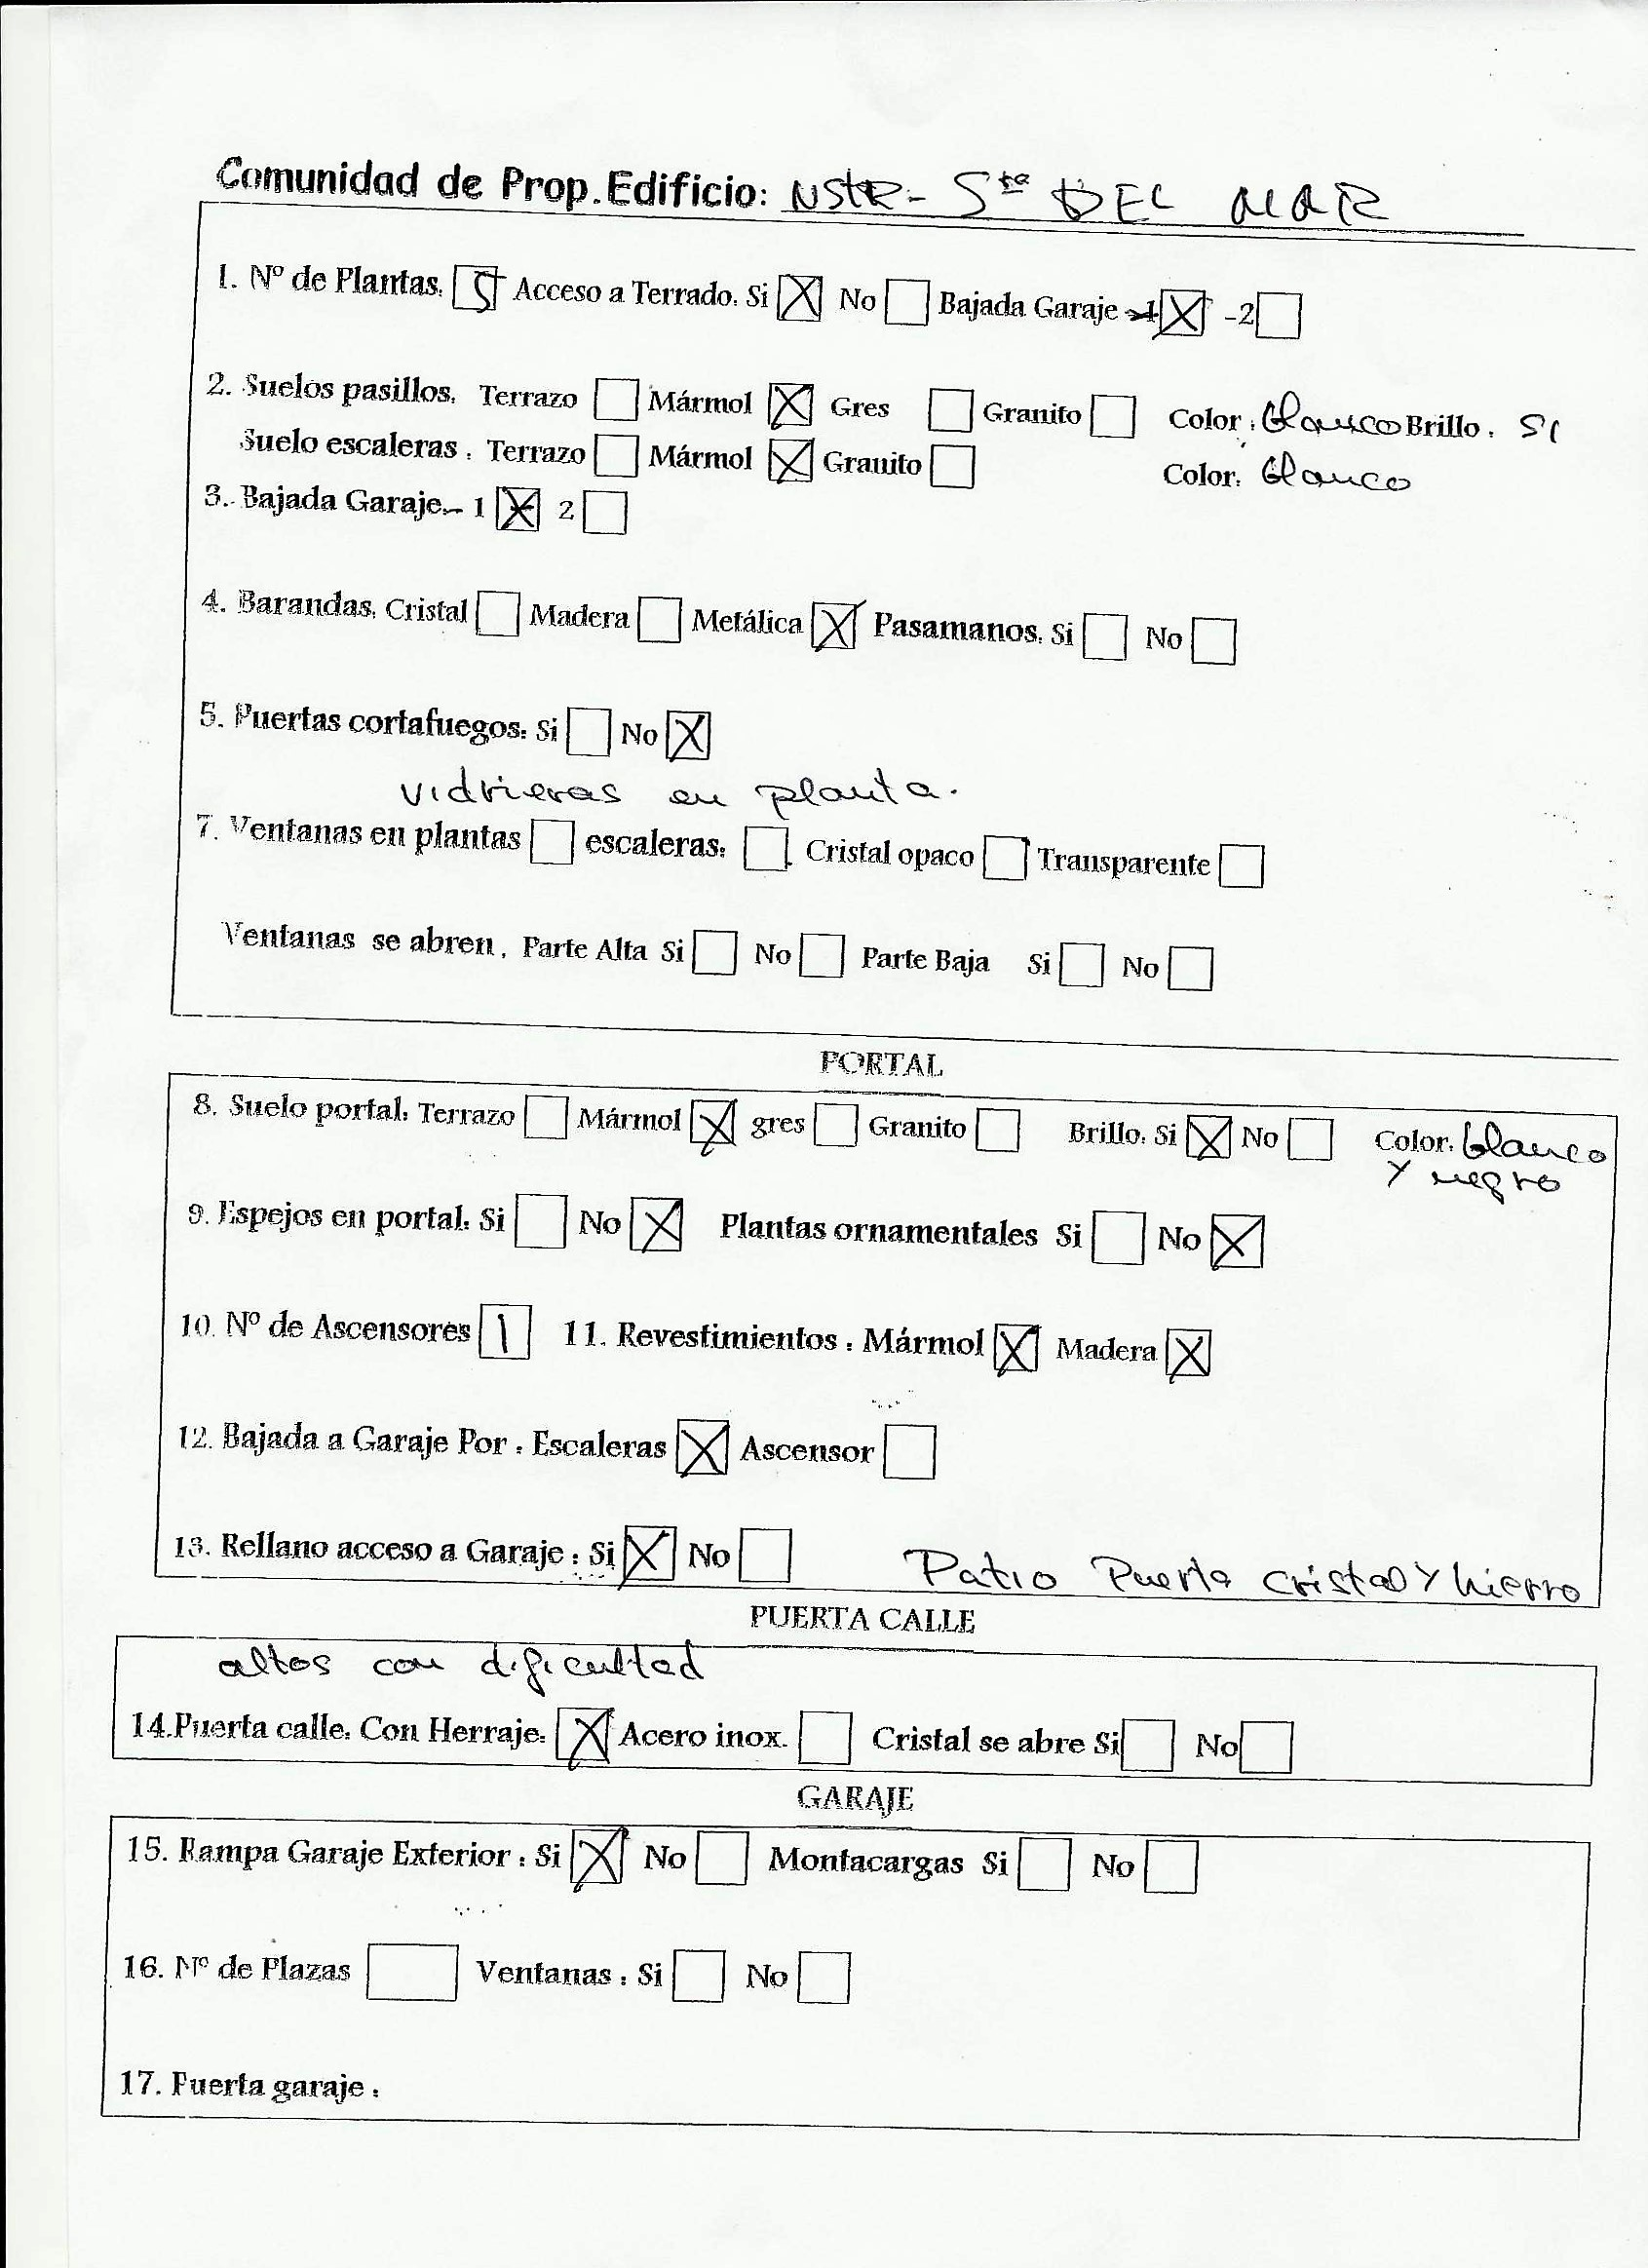 Comunidad de Prop. Edificio: NSTR- Sra DEL MAR
1. Nº de Plantas: 5 Acceso a Terrado: Si X No Bajada Garaje -1 X -2
2. Suelos pasillos: Terrazo Mármol X Gres Granito Color: blanco Brillo: SI
Suelo escaleras: Terrazo Mármol X Granito Color: blanco
3. Bajada Garaje.- 1 X 2
4. Barandas: Cristal Madera Metálica X Pasamanos: Si No
5. Puertas cortafuegos: Si No X
vidrieras en planta.
7. Ventanas en plantas escaleras: Cristal opaco Transparente
Ventanas se abren: Parte Alta Si No Parte Baja Si No
PORTAL
8. Suelo portal: Terrazo Mármol X gres Granito Brillo: Si X No Color: blanco
Y negro
9. Espejos en portal: Si No X Plantas ornamentales Si No X
10. Nº de Ascensores 1 11. Revestimientos: Mármol X Madera X
12. Bajada a Garaje Por: Escaleras X Ascensor
13. Rellano acceso a Garaje: Si X No Patio Puerta cristal Y hierro
PUERTA CALLE
altos con dificultad
14.Puerta calle: Con Herraje: X Acero inox. Cristal se abre Si No
GARAJE
15. Rampa Garaje Exterior: Si X No Montacargas Si No
16. Nº de Plazas Ventanas: Si No
17. Puerta garaje: